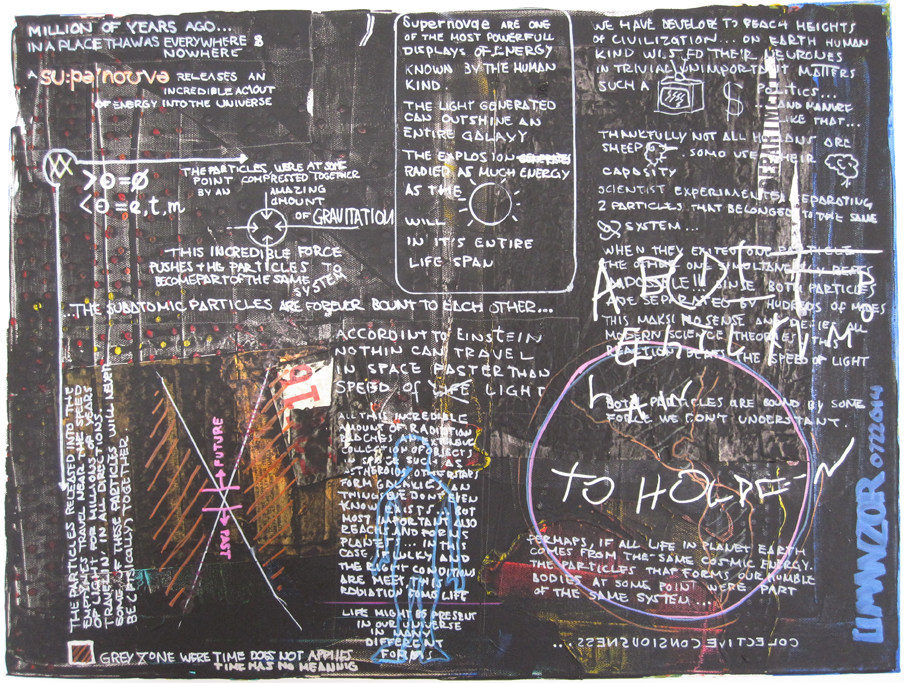 MILLION OF YEARS AGO...
IN A PLACE THAWAS EVERYWHERE &
NOWHERE
A SU:PƏ/NOUVƏ RELEASES AN
INCREDIBLE
OF ENERGY INTO THE UNIVERSE
>⊙=Ø
<⊙=e,t,m
THE PARTICLES WERE AT SOME
POINT COMPRESTED TOGETHER
BY AN AMAZING
AMOUNT
OF GRAVITATION
THIS INCREDIBLE FORCE
PUSHES THIS PARTICLES TO
BECOME PART OF THE SAME
SYSTEM
...THE SUBATOMIC PARTICLES ARE FOREVER BOUND TO EACH OTHER...
THE PARTICLES RELEASED INTO THE
EMPTYNES TRAVEL NEAR THE SPEED
OF LIGHT FOR MILLIONS OF YEARS
TRAVELIN' IN ALL DIRECTIONS.
SOME OF THESE PARTICLES WILL NEVER
BE (PHYSICALLY) TOGETHER.
FUTURE
PAST
GREY ZONE WERE TIME DOES NOT APPLIES
TIME HAS NO MEANNIG
Supernovae ARE ONE
OF THE MOST POWERFULL
DISPLAYS OF ENERGY
KNOWN BY THE HUMAN
KIND.
THE LIGHT GENERATED
CAN OUTSHINE AN
ENTIRE GALAXY
THE EXPLOSION
RADIED AS MUCH ENERGY
AS THE
WILL
IN IT'S ENTIRE
LIFE SPAN
ACCORDINT TO EINSTEIN
NOTHIN CAN TRAVEL
IN SPACE FASTER THAN
SPEED OF LIFE LIGHT
ALL THIS INCREDIBLE
AMOUNT OF RADIATION
REACHES AN EXTENSIVE
COLLECTION OF OBJECTS
IN SPACE SUCH AS
ASTHEROIDS, OTHER STARS
FORM GALAXIES AN
THINGS WE DONT EVEN
KNOW EXISTS. BOT
MOST IMPORTANT ALSO
REACHS AND FORMS
PLANETS... IN THIS
CASE IF LUCKY AND
THE RIGHT CONDITIONS
ARE MEET, THIS
RADIATION FOMS LIFE
LIFE MIGHT BE PRESENT
IN OUR UNIVERSE
IN MANY
DIFFERENT
FORMS
WE HAVE DEVELOP TO REACH HEIGHTS
OF CIVILIZATION... ON EARTH HUMAN
KIND WISTED THEIR NEURONES
IN TRIVIAL UNIMPORTANT MATTERS
SUCH A $ POLITICS...
...AND MANURE
LIKE THAT...
THANKFULLY NOT ALL HUMANS ARE
SHEEP. SOMO USE THEIR
CAPASITY
SCIENTIST EXPERIMENTED SEPARATING
2 PARTICLES THAT BELONGED TO THE SAME
SYSTEM...
WHEN THEY EXITED ONE PARTICLE
THE OTHER ONE SIMULTANEALLY
IMPOSSIBLE IN SINSE BOTH PARTICLES
ARE SEPARATED BY HUDEDS OF MILES
THIS MAKS NO SENSE AND DEFIE ALL
MODERN SCIENCE THEORIES
REACTION BEATS THE SPEED OF LIGHT
BOTH PARTICLES ARE BOUND BY SOME
FORCE WE DON'T UNDERSTANT.
TO HOLDE
PERHAPS, IF ALL LIFE IN PLANET EARTH
COMES FROM THE SAME COSMIC ENERGY.
THE PARTICLES THAT FORMS OUR HUMBLE
BODIES AT SOME POIN WERE PART
OF THE SAME SYSTEM...
COLECTIVE CONSIOUSNESS...
LIMANZOR 07222014